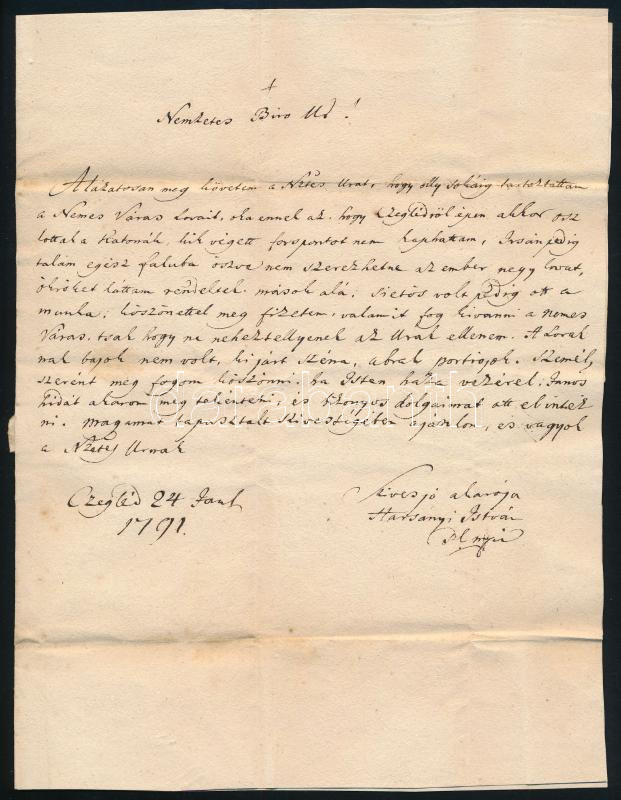 Nemzetes Biro Ur!
Alázatosan meg követem a Nztes Urat, hogy olly sokáig tartoztattam
a Nemes Város Lovait, oka ennek az, hogy Czeglédröl épen akkor osz
lottak a Katonák, kik végett forspontot nem kaphattam, Irsán pedig
talám egész faluba öszve nem szerezhetne az ember negy lovat,
ökröket láttam rendeltek mások alá; sietös volt pedig ott a
munka; köszönettel meg fizetem, valamit fog kivanni a nemes
Város, tsak hogy ne neheztellyenek az Urak ellenem. A Lovak
nak bajok nem volt, ki járt széna, abrak portiojok. Személy
szerént meg fogom köszönni, ha Isten haza vezérel; János
hidát akarom meg tekenteni, és bizonyos dolgaimat ott el intéz
ni. magamat tapasztalt szivességében ajánlom, és vagyok
a Nztes Urnak
Czegléd 24 Janl
1791.
Szives jó akarója
Harsányi István